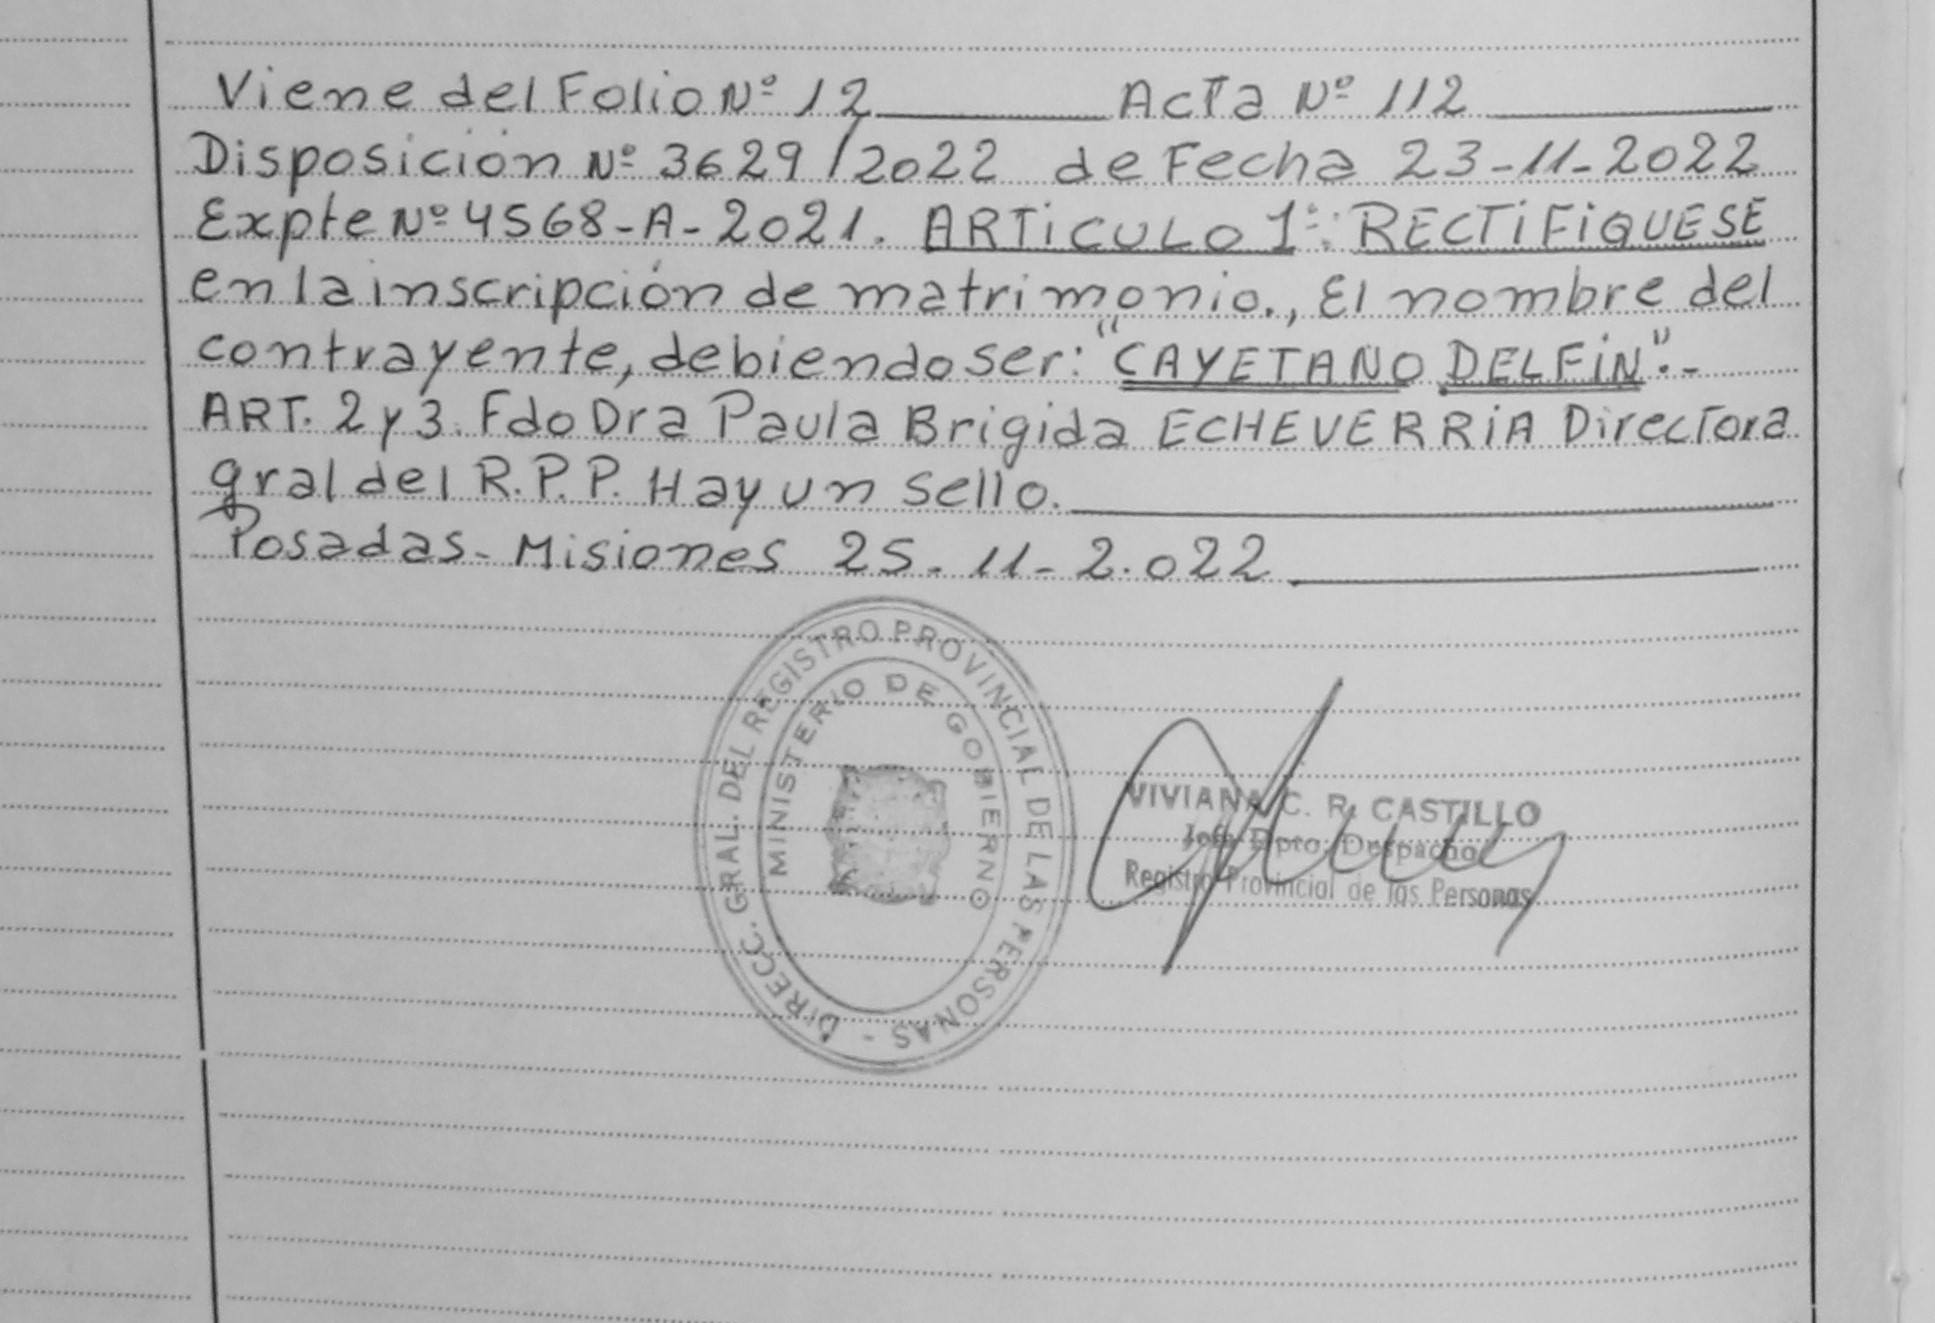 Viene del Folio Nº 12 Acta Nº 112
Disposición Nº 3629/2022 de Fecha 23-11-2022
Expte Nº 4568-A-2021. ARTiCULO 1º: RECTiFiQUESE
en la inscripción de matrimonio., El nombre del
contrayente, debiendo ser: "CAYETANO DELFiN".-
ART. 2 y 3. Fdo Dra Paula Brigida ECHEVERRiA Directora
gral del R.P.P. Hay un sello.
Posadas- Misiones 25-11-2.022
DIRECC. GRAL. DEL REGISTRO PROVINCIAL DE LAS PERSONAS -
MINISTERIO DE GOBIERNO
VIVIANA C. R. CASTILLO
Jefa Dpto. Despacho
Registro Provincial de las Personas